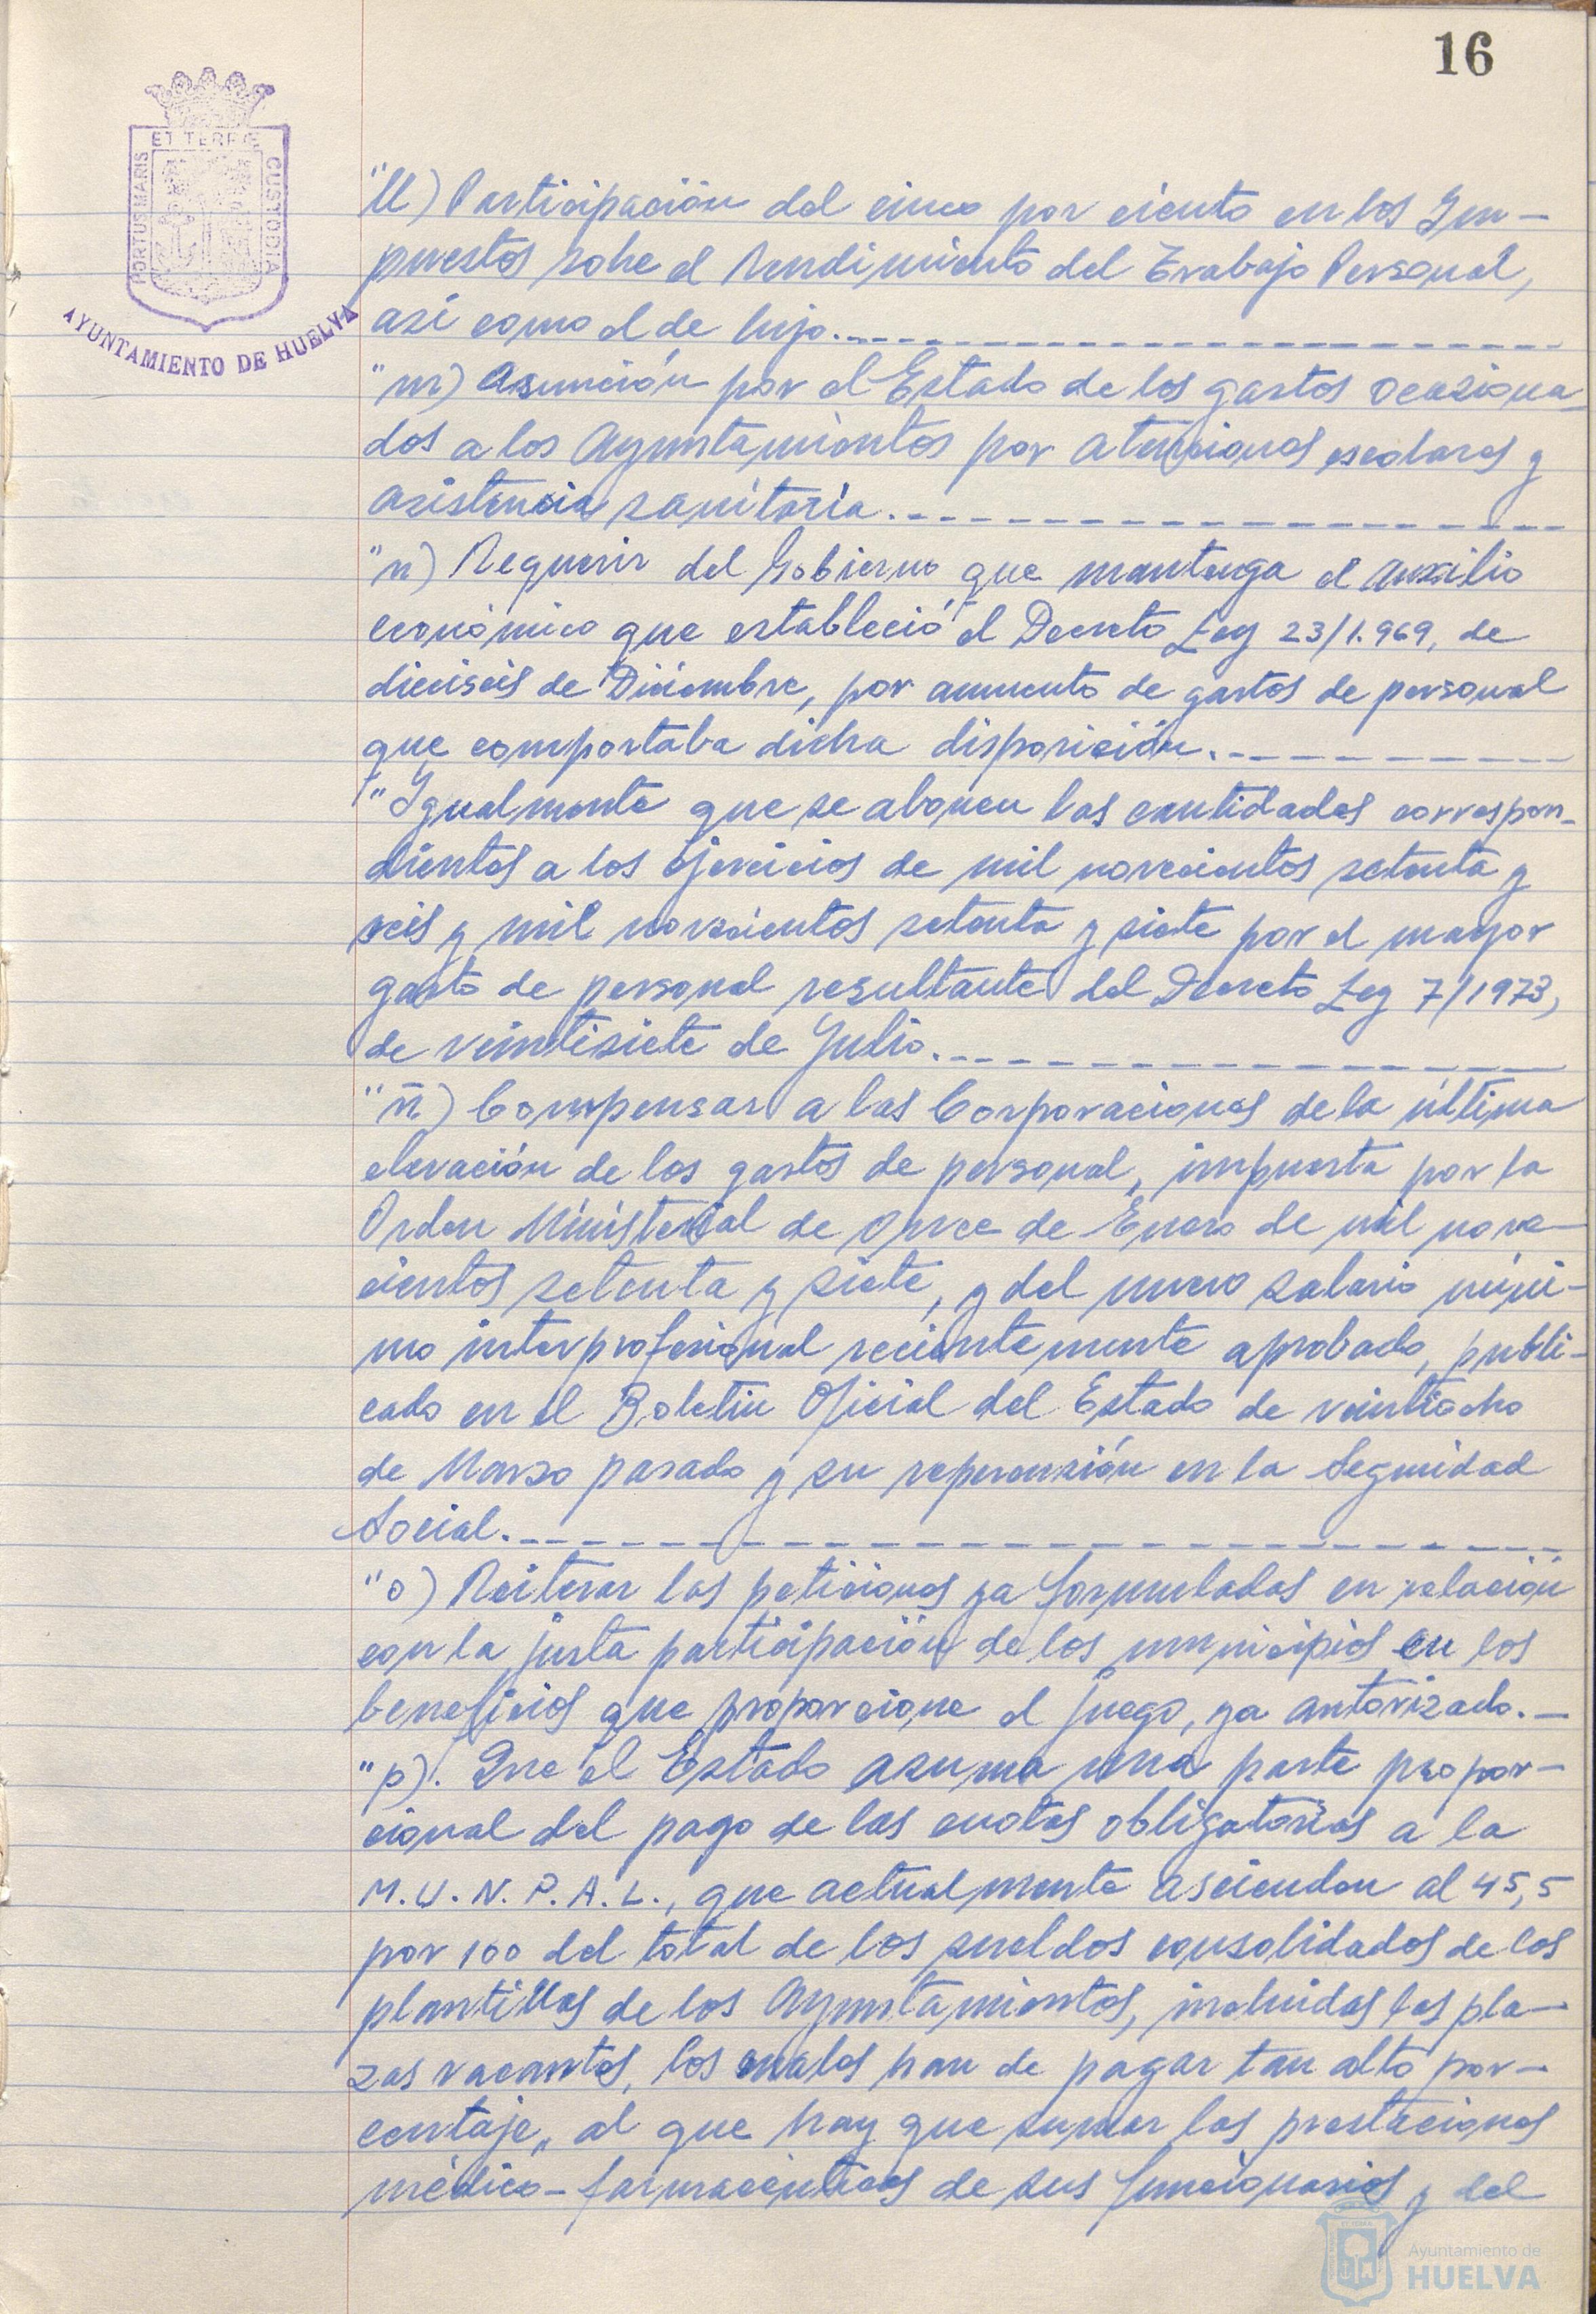 16
ET TERRÆ
PORTUS MARIS
CUSTODIA
AYUNTAMIENTO DE HUELVA
"ll) Participación del cinco por ciento en los Im-
puestos sobre el Rendimiento del Trabajo Personal,
así como el de lujo.
"m) Asunción por el Estado de los gastos ocasiona-
dos a los Ayuntamientos por atenciones escolares y
asistencia sanitaria.
"n) Requerir del Gobierno que mantenga el auxilio
económico que estableció el Decreto Ley 23/1.969, de
dieciseis de Diciembre, por aumento de gastos de personal
que comportaba dicha disposición.
"Igualmente que se abonen las cantidades correspon-
dientes a los ejercicios de mil novecientos setenta y
seis y mil novecientos setenta y siete por el mayor
gasto de personal resultante del Decreto Ley 7/1973,
de veintisiete de Julio.
"ñ) Compensar a las Corporaciones de la última
elevación de los gastos de personal, impuesta por la
Orden Ministerial de once de Enero de mil nove-
cientos setenta y siete, y del nuevo salario míni-
mo interprofesional recientemente aprobado, publi-
cado en el Boletín Oficial del Estado de veintiocho
de Marzo pasado y su repercusión en la Seguridad
Social.
"o) Reiterar las peticiones ya formuladas en relación
con la justa participación de los municipios en los
beneficios que proporcione el juego, ya autorizado.-
"p). Que el Estado asuma una parte propor-
cional del pago de las cuotas obligatorias a la
M.U.N.P.A.L., que actualmente ascienden al 45,5
por 100 del total de los sueldos consolidados de los
plantillas de los Ayuntamientos, incluidas las pla-
zas vacantes, los cuales han de pagar tan alto por-
centaje, al que hay que sumar las prestaciones
médico-farmacéuticas de sus funcionarios y del
Ayuntamiento de
HUELVA